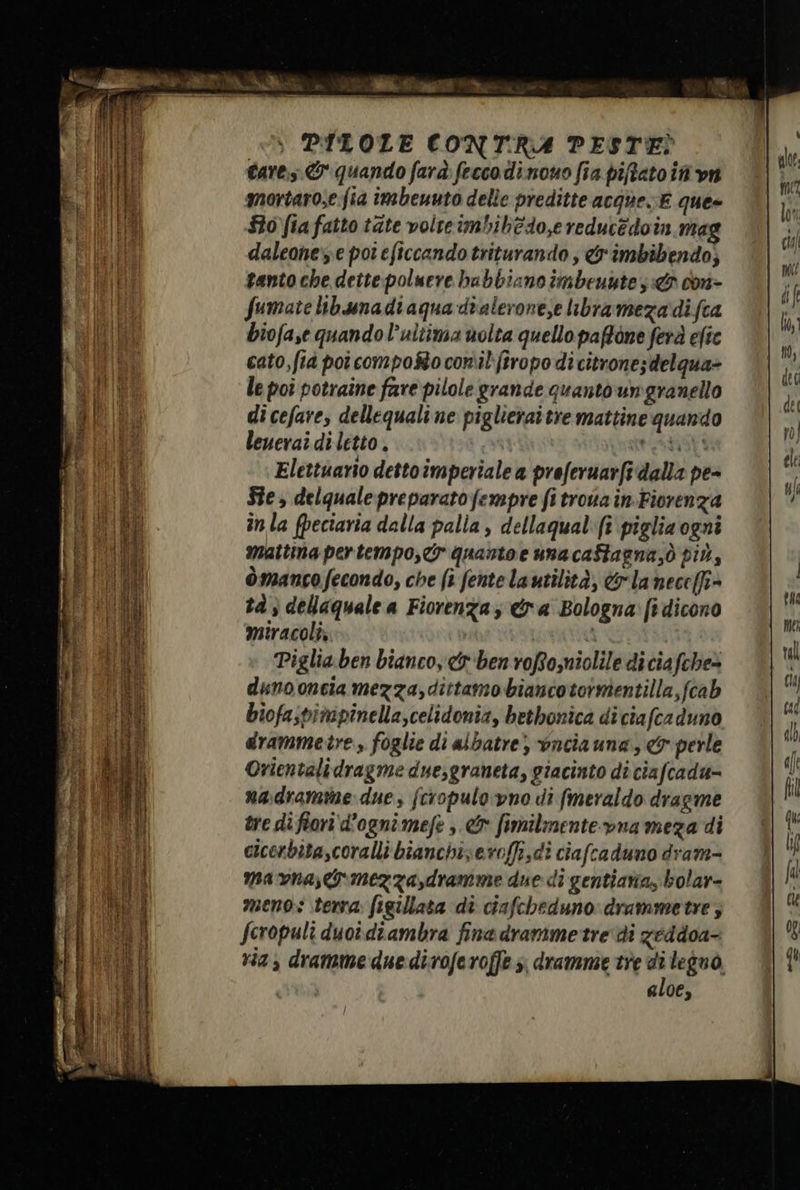 PILOLE CONTRA PESTE
care, & quando sarà secco di nouo sia pistato in vn
mortaro, e sia imbeuuto delle preditte acque. E que-
sto sia fatto tāte volte imbibēdo, e reducēdo in mag
daleone, e poi esiccando triturando, & imbibendo,
tanto che dette poluere habbiano imbeuute, & con-
sumate lib. una di aqua di alerone, e libra meza di sca
biosa, e quando l'ultima uolta quello pastone serà esic
cato, sia poi composto con il siropo di citrone; del qua-
le poi potraine fare pilole grande quanto un granello
di cesare, delle quali ne piglierai tre mattine quando
leuerai di letto.
Elettuario detto imperiale a preseruarsi dalla pe-
ste, del quale preparato sempre si troua in Fiorenza
in la speciaria dalla palla, della qual si piglia ogni
mattina per tempo, & quanto e una castagna, ò più,
ò manco secondo, che si sente la utilità, & la necessi-
tà; della quale a Fiorenza, & a Bologna si dicono
miracoli.
Piglia ben bianco, & ben rosso, niolile di ciasche-
duno oncia mezza, dittamo bianco tormentilla, scab
biosa, pimpinella, celidonia, bethonica di ciascaduno
dramme tre, foglie di albatre, oncia una, & perle
Orientali dragme due, graneta, giacinto di ciascadu-
na dramme due, scropulo vno di smeraldo dragme
tre di fiori d'ogni mese, & similmente vna meza di
cicerbita, coralli bianchi, e rossi, di ciascaduno dram-
ma vna, & mezza, dramme due di gentiana, bolar-
meno: terra sigillata di ciascheduno dramme tre,
scropuli duoi di ambra fina dramme tre di zeddoa-
ria, dramme due di rose rosse, dramme tre di legno
aloe,